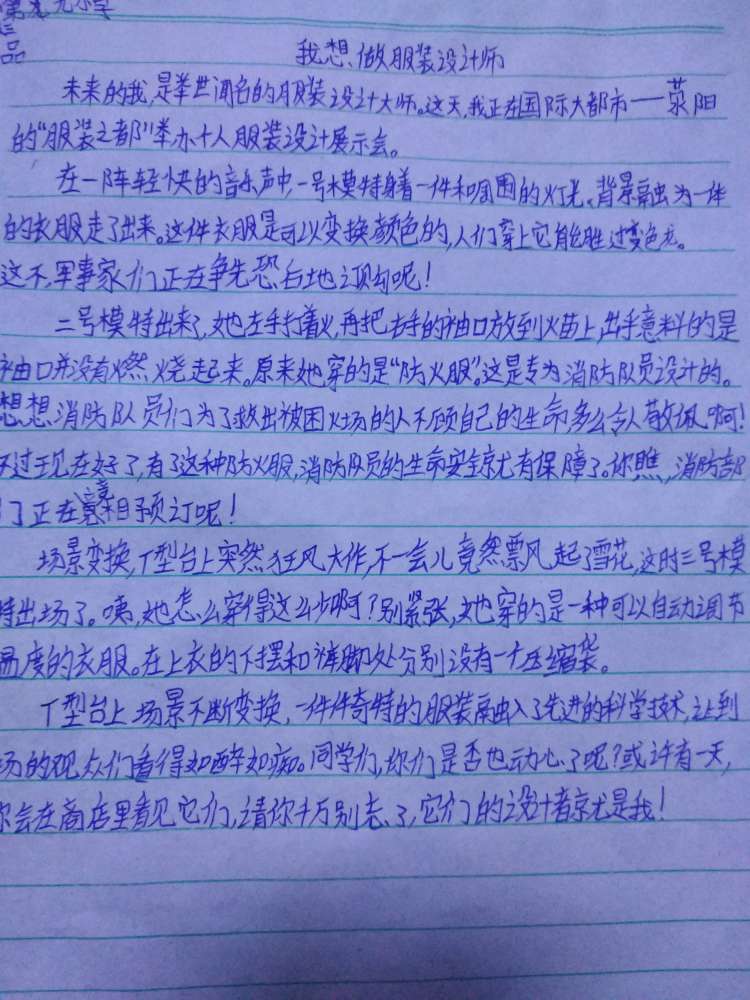 第九九小学
品
我想做服装设计师
未来的我,是举世闻名的服装设计大师。这天,我正在国际大都市——荥阳
的“服装之都”举办个人服装设计展示会。
在一阵轻快的音乐声中一号模特身着一件和周围的灯光、背景融为一体
的衣服走了出来。这件衣服是可以变换颜色的,人们穿上它能胜过变色龙。
这不,军事家们正在争先恐后地订购呢!
二号模特出来了,她左手打着火,再把右手的袖口放到火苗上,出乎意料的是
袖口并没有燃烧起来。原来她穿的是“防火服”。这是专为消防队员设计的。
想想消防队员们为了救出被困火场的人不顾自己的生命多么令人敬佩啊!
不过现在好了,有了这种防火服,消防队员的生命安全就有保障了。你瞧,消防部
门正在竞相预订呢!
场景变换,T型台上突然狂风大作,不一会儿竟然飘起了雪花,这时三号模
特出场了。咦,她怎么穿得这么少啊?别紧张,她穿的是一种可以自动调节
温度的衣服。在上衣的下摆和裤脚处分别设有一个压缩袋。
T型台上场景不断变换,一件件奇特的服装融入了先进的科学技术,让到
场的观众们看得如醉如痴。同学们,你们是否也动心了呢?或许有一天,
你会在商店里看见它们,请你千万别忘了,它们的设计者就是我!